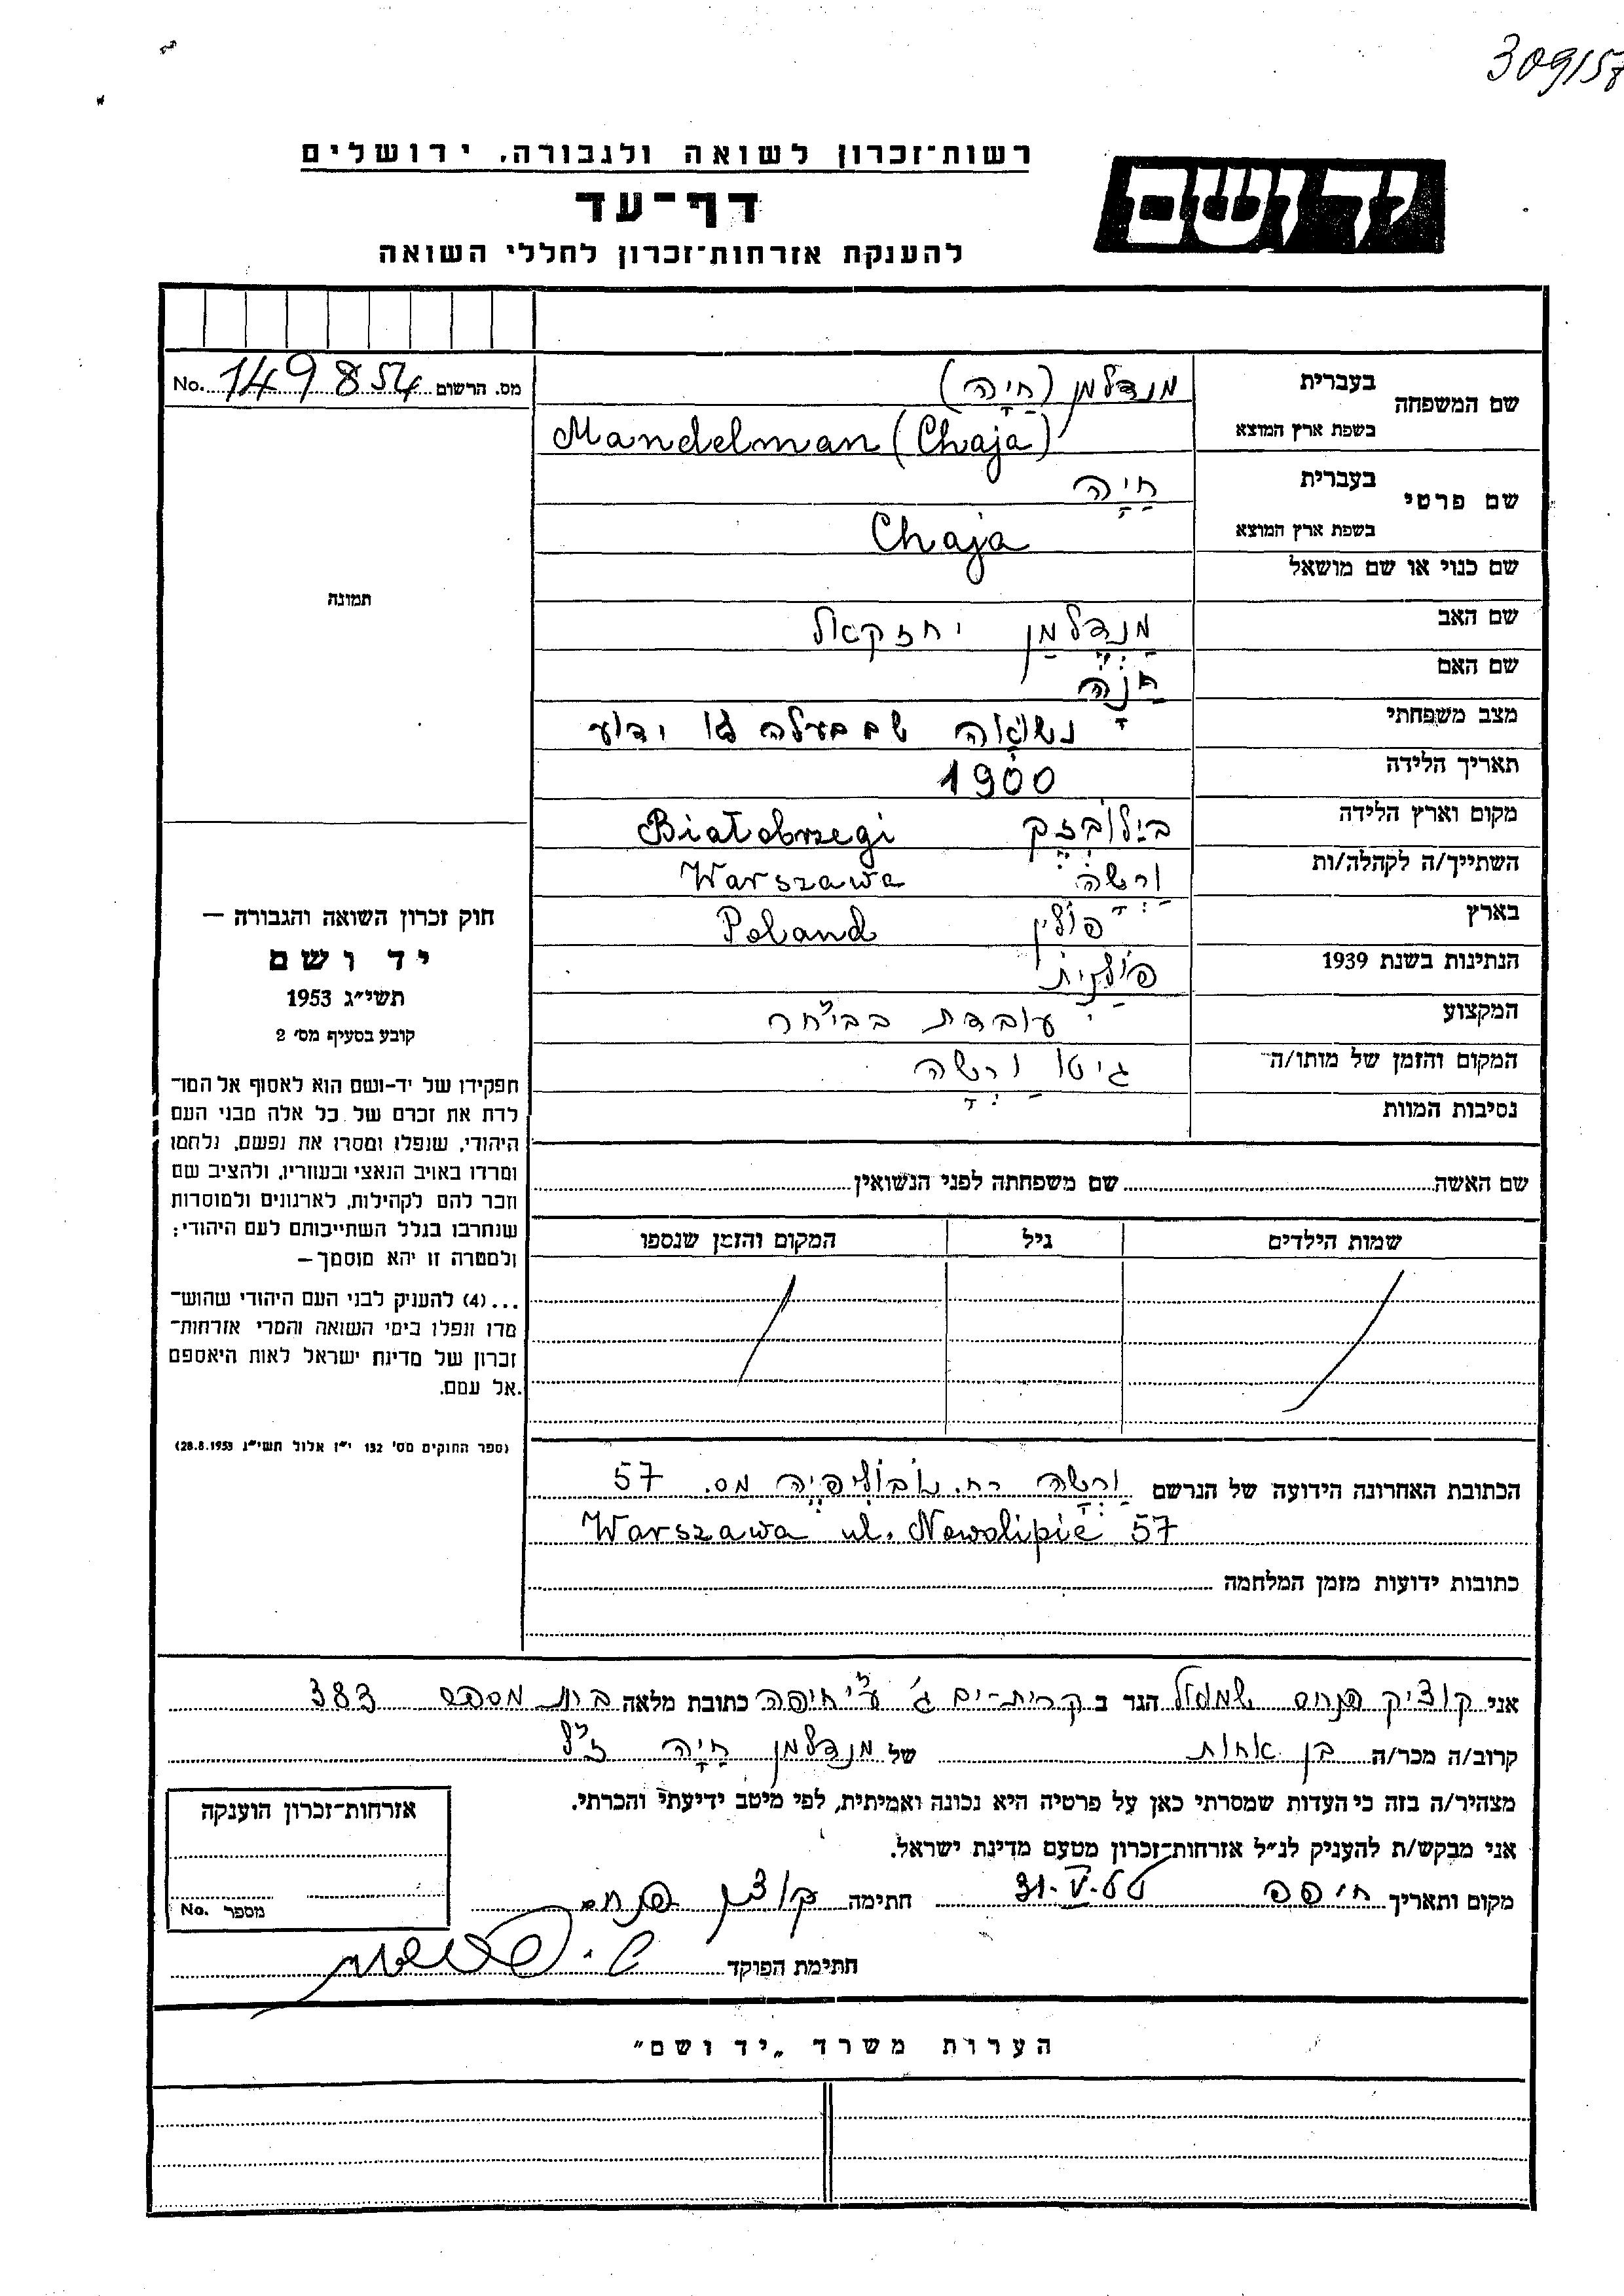 309157
רשות־זכרון לשואה ולגבורה, ירושלים
יד ושם
דף־עד
להענקת אזרחות־זכרון לחללי השואה
מס. הרשום 149854 No.
שם המשפחה
בעברית מנדלמן (חַיָה)
בשפת ארץ המוצא Mandelman (Chaja)
שם פרטי
בעברית חַיָה
בשפת ארץ המוצא Chaja
שם כנוי או שם מושאל
שם האב מַנְדֶלמַן יחזקאל
שם האם חַנָה
מצב משפחתי נשואה שם בעלה לא ידוע
תאריך הלידה 1900
מקום וארץ הלידה Białobrzegi
השתייך/ה לקהלה/ות וַרְשָה Warszawa
בארץ פולין Poland
הנתינות בשנת 1939 פולנית
המקצוע עובדת בביח״ר
המקום והזמן של מותו/ה גיטו וַרְשָה
נסיבות המוות
שם האשה שם משפחתה לפני הנשואין
שמות הילדים גיל המקום והזמן שנספו
הכתובת האחרונה הידועה של הנרשם וַרְשָה רח. נובוליפיה מס. 57
Warszawa ul. Nowolipie 57
כתובות ידועות מזמן המלחמה
תמונה
חוק זכרון השואה והגבורה —
יד ושם
תשי״ג 1953
קובע בסעיף מס׳ 2
תפקידו של יד-ושם הוא לאסוף אל המו־
לדת את זכרם של כל אלה מבני העם
היהודי, שנפלו ומסרו את נפשם, נלחמו
ומרדו באויב הנאצי ובעוזריו, ולהציב שם
וזכר להם לקהילות, לארגונים ולמוסדות
שנחרבו בגלל השתייכותם לעם היהודי;
ולמטרה זו יהא מוסמך —
...(4) להעניק לבני העם היהודי שהוש־
מדו ונפלו בימי השואה והמרי אזרחות־
זכרון של מדינת ישראל לאות היאספם
אל עמם.
(ספר החוקים מס׳ 132 י״ז אלול תשי״ג 28.8.1953)
אני קוציק פנחס שמואל הגר ב קרית-ים ג׳ ע״י חיפה כתובת מלאה 383
קרוב/ה מכר/ה בן אחות של מנדלמן חַיָה ז״ל
מצהיר/ה בזה כי העדות שמסרתי כאן על פרטיה היא נכונה ואמיתית, לפי מיטב ידיעתי והכרתי.
אני מבקש/ת להעניק לנ״ל אזרחות־זכרון מטעם מדינת ישראל.
מקום ותאריך חיפה 31.V. חתימה
חתימת הפוקד
אזרחות־זכרון הוענקה
מספר No.
הערות משרד „יד ושם״